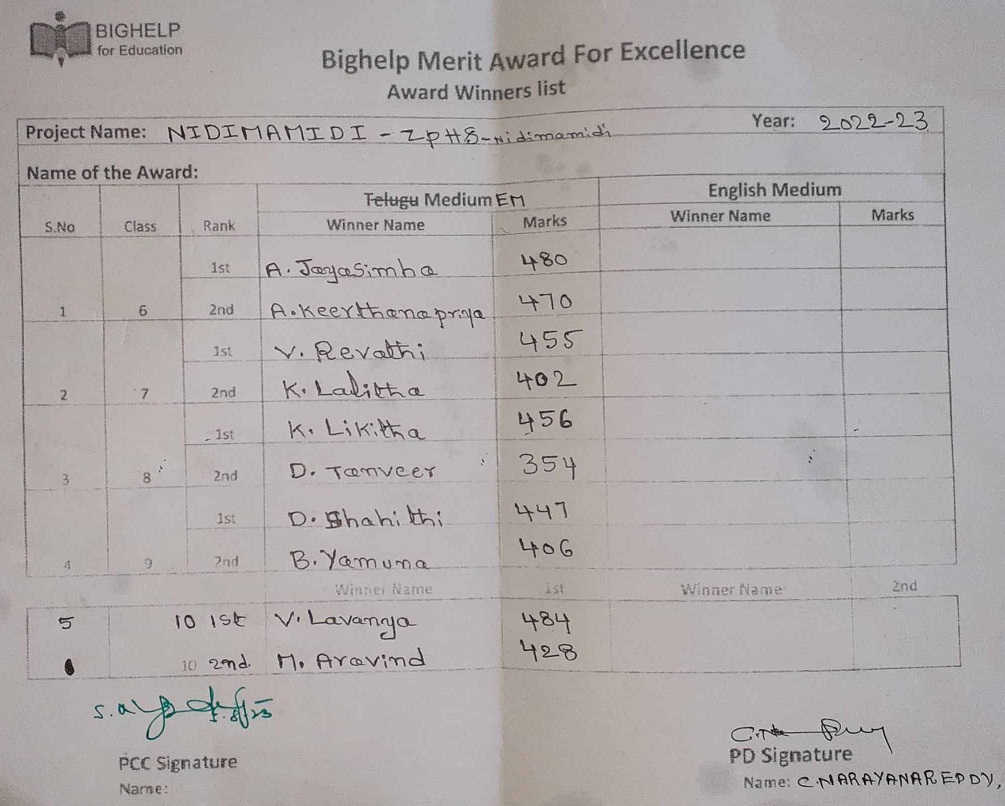 BIGHELP
for Education
Bighelp Merit Award For Excellence
Award Winners list
Project Name: NIDIMAMIDI - ZPHS-Nidimamidi Year: 2022-23
Name of the Award:
Telugu Medium EM English Medium
S.No Class Rank Winner Name Marks Winner Name Marks
1st A. Jayasimha 480
1 6 2nd A. Keerthanapriya 470
1st V. Revathi 455
2 7 2nd K. Lalitha 402
1st K. Likitha 456
3 8 2nd D. Tanveer 354
1st D. Shahithi 447
4 9 2nd B. Yamuna 406
Winner Name 1st Winner Name 2nd
5 10 1st V. Lavanya 484
10 2nd. M. Aravind 428
PCC Signature
Name:
PD Signature
Name: C.NARAYANAREDDY,